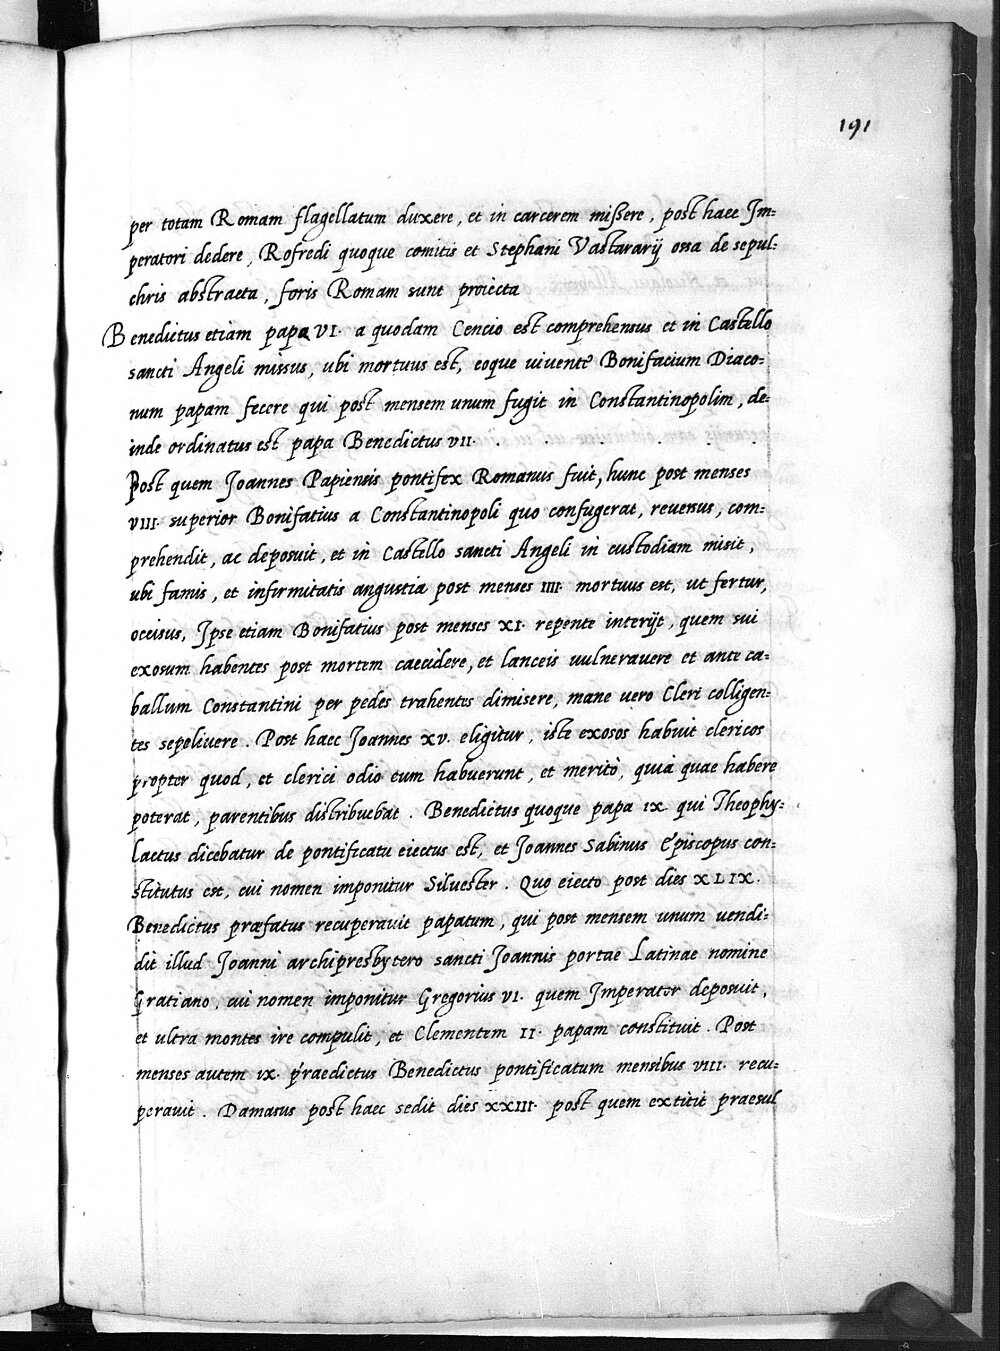 191
per totam Romam flagellatum duxere, et in carcerem missere, post haec Im=
peratori dedere, Rofredi quoque comitis et Stephani Vastararij ossa de sepul=
chris abstraeta, foris Romam sunt proiecta
Benedictus etiam papa VI. a quodam Cencio est comprehensus et in Castello
sancti Angeli missus, ubi mortuus est, eoque vivente Bonifacium Diaco=
num papam fecere qui post mensem unum fugit in Constantinopolim, de=
inde ordinatus est papa Benedictus VII.
Post quem Joannes Papiensis pontifex Romanus fuit, hunc post menses
VIII. superior Bonifatius a Constantinopoli quo confugerat, reversus, com=
prehendit, ac deposuit, et in Castello sancti Angeli in custodiam misit,
ubi famis, et infirmitatis angustia post menses IIII. mortuus est, ut fertur,
occisus, Ipse etiam Bonifatius post menses XI. repente interijt, quem sui
exosum habentes post mortem caecidere, et lanceis vulneravere et ante ca=
ballum Constantini per pedes trahentes dimisere, mane vero Cleri colligen=
tes sepelivere. Post haec Joannes XV. eligitur, iste exosos habuit clericos
propter quod, et clerici odio eum habuerunt, et merito, quia quae habere
poterat, parentibus distribuebat. Benedictus quoque papa IX. qui Theophy=
lactus dicebatur de pontificatu eiectus est, et Joannes Sabinus Episcopus con=
stitutus est, cui nomen imponitur Silvester. Quo eiecto post dies XLIX.
Benedictus præfatus recuperavit papatum, qui post mensem unum vendi=
dit illud Joanni archipresbytero sancti Joannis portae Latinae nomine
Gratiano, cui nomen imponitur Gregorius VI. quem Imperator deposuit,
et ultra montes ire compulit, et Clementem II. papam constituit. Post
menses autem IX. praedictus Benedictus pontificatum mensibus VIII. recu=
peravit. Damasus post haec sedit dies XXIII. post quem extitit praesul